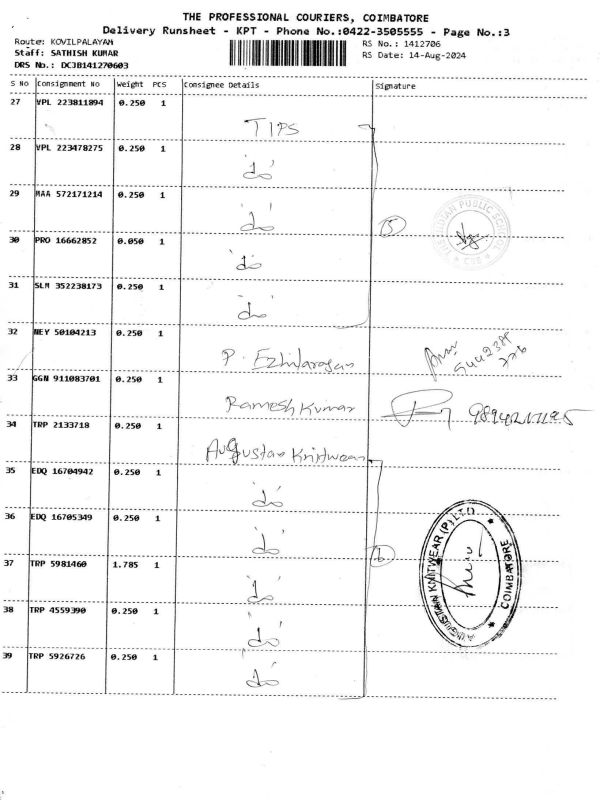 THE PROFESSIONAL COURIERS, COIMBATORE
Delivery Runsheet - KPT - Phone No.:0422-3505555 - Page No.:3
Route: KOVILPALAYAM
RS No.: 1412706
Staff: SATHISH KUMAR
RS Date: 14-Aug-2024
DRS No.: DCJB141270603
S No Consignment No Weight PCS Consignee Details Signature
27 VPL 223811894 0.250 1 TIPS
28 VPL 223478275 0.250 1 "do"
29 MAA 572171214 0.250 1 "do"
30 PRO 16662852 0.050 1 "do"
31 SLM 352238173 0.250 1 "do"
5
PUBLIC SCHOOL
CBE
32 NEY 50104213 0.250 1 P. Ezhilarasan
33 GGN 911083701 0.250 1 Ramesh Kumar
34 TRP 2133718 0.250 1 Augustan Knitwear
35 EDQ 16704942 0.250 1 "do"
36 EDQ 16705349 0.250 1 "do"
37 TRP 5981460 1.785 1 "do"
38 TRP 4559390 0.250 1 "do"
39 TRP 5926726 0.250 1 "do"
6
AUGUSTAN KNITWEAR (P) LTD
COIMBATORE